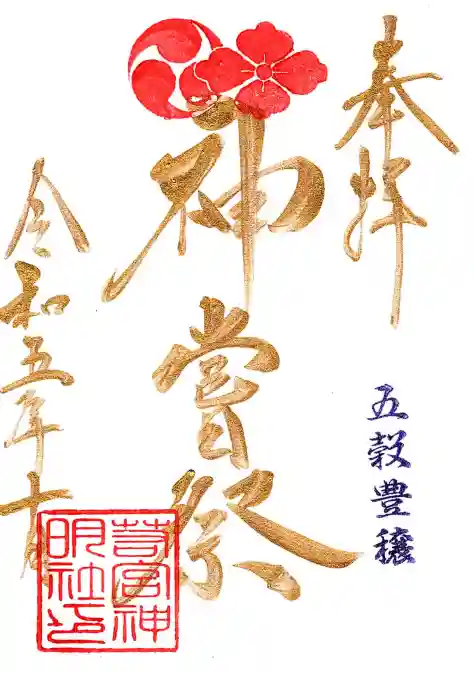 奉拝
五穀豊穣
神嘗祭
令和五年十月
芒宮神
明社印